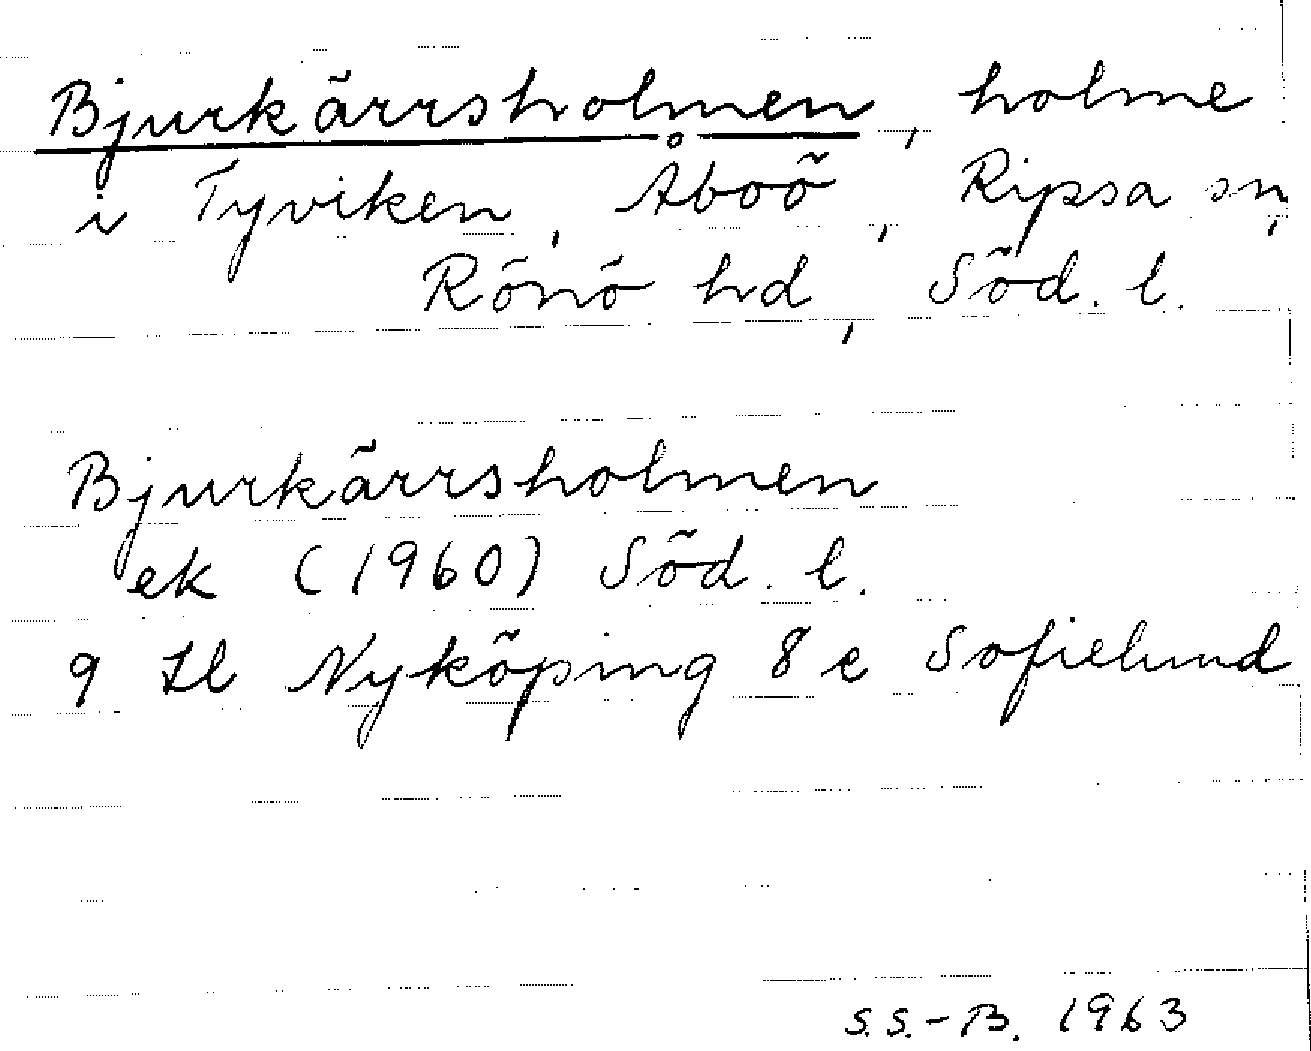 Bjurkärrsholmen, holme
i Tyviken, Åboö, Ripsa sn,
Rönö hd, Söd. l.
Bjurkärrsholmen
ek (1960) Söd. l.
9 Il Nyköping 8 e Sofielund
S.S.-B. 1963